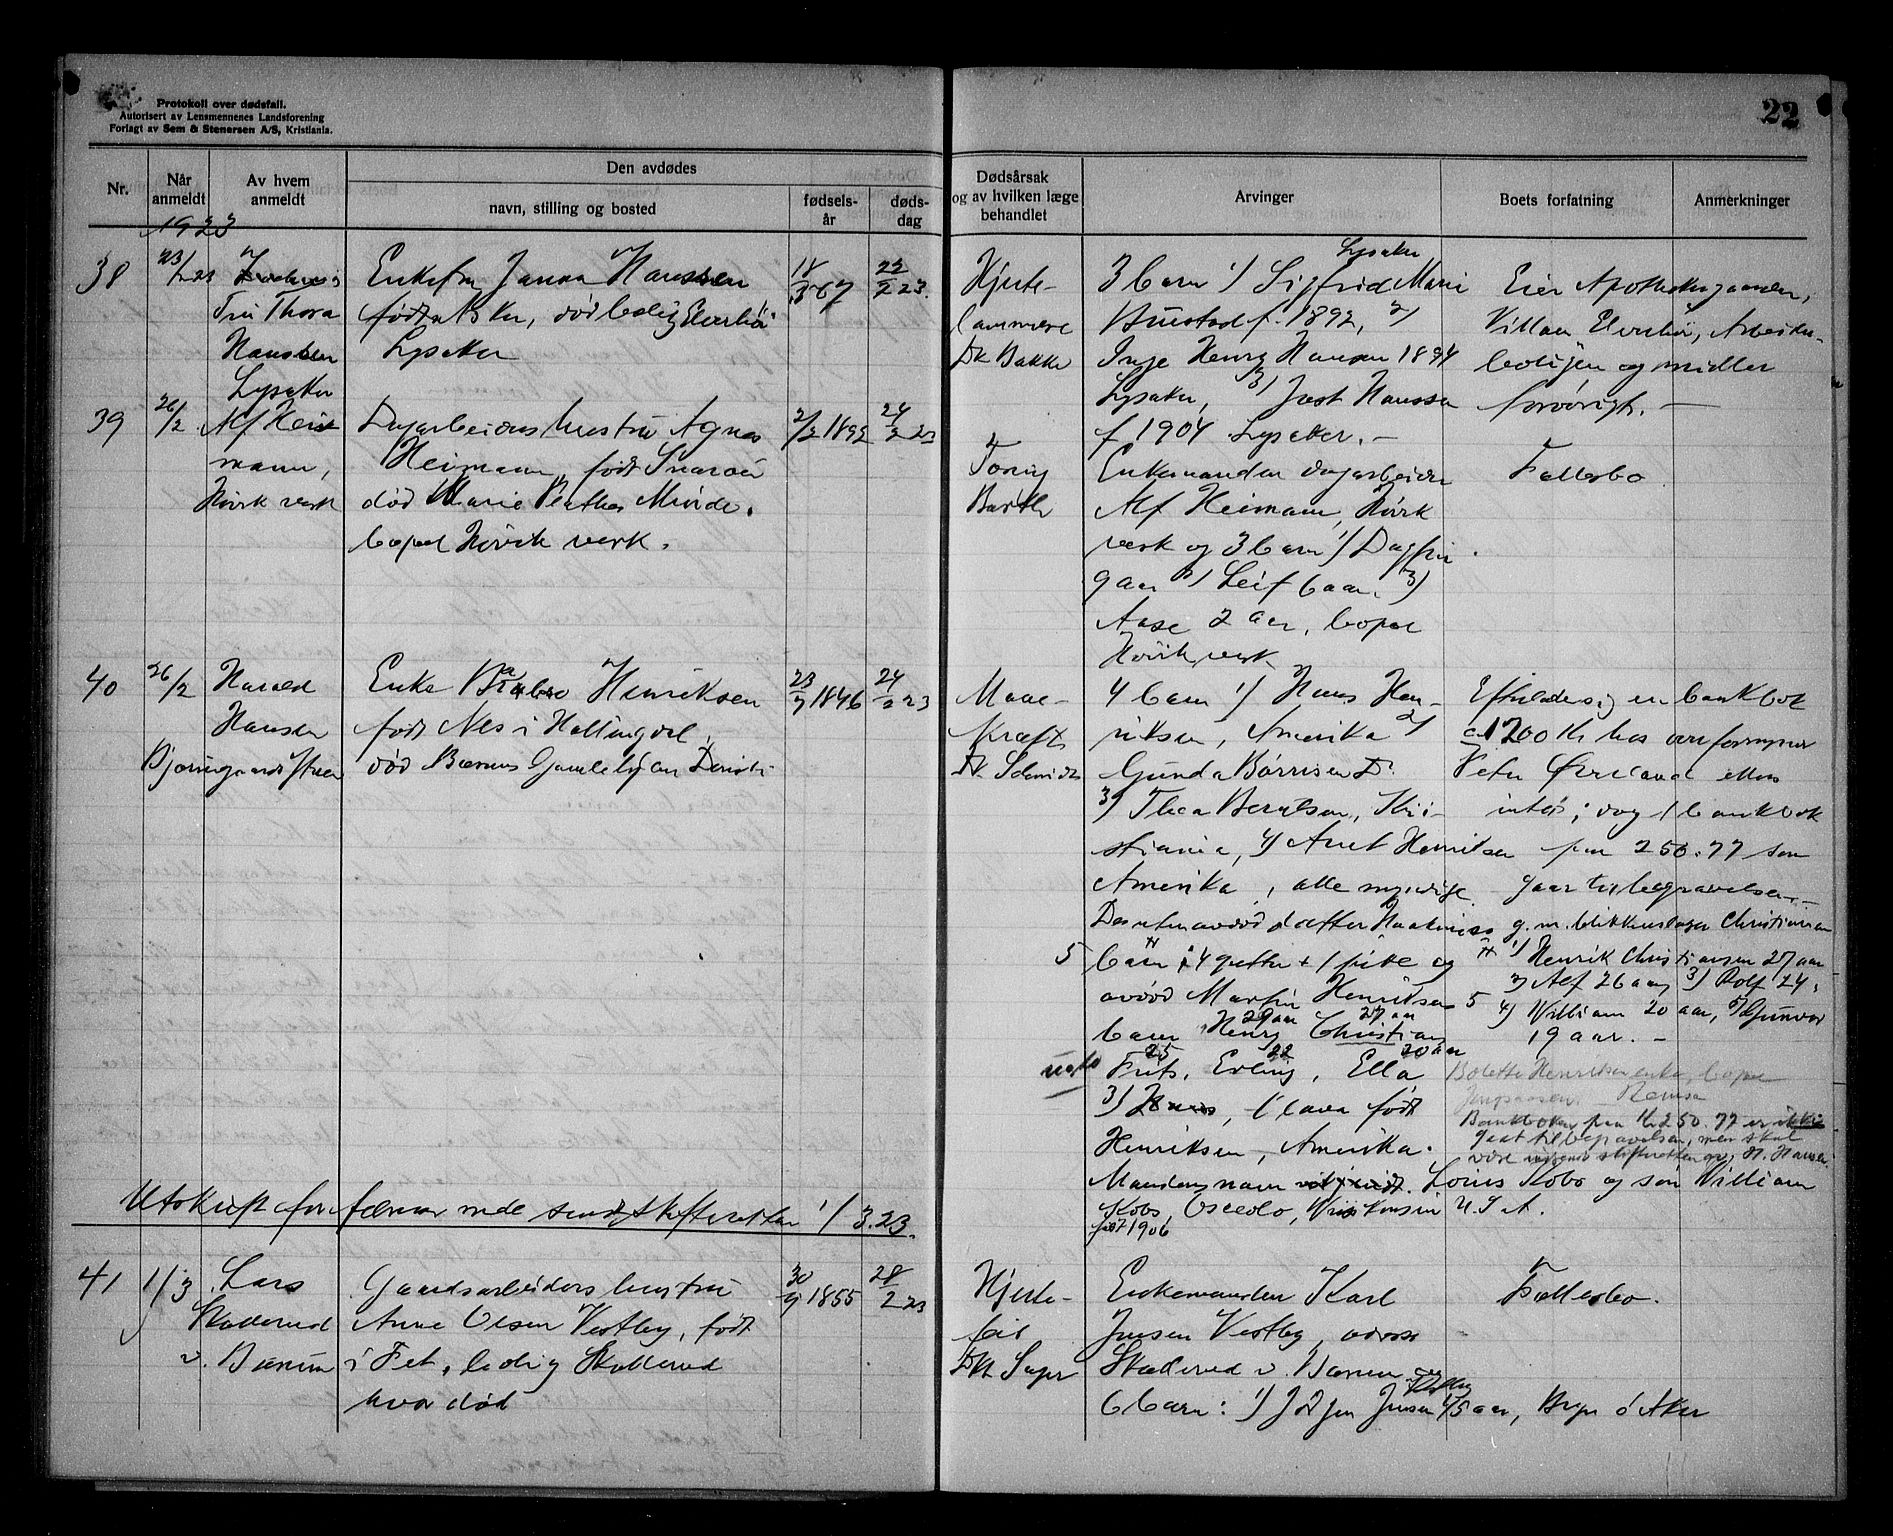 22
Protokoll over dødsfall.
Autorisert av Lensmennenes Landsforening
Forlagt av Sem & Stenersen A/S, Kristiania.
Nr.
Når anmeldt
Av hvem anmeldt
Den avdødes
navn, stilling og bosted
fødsels-år
døds-dag
Dødsårsak og av hvilken læge behandlet
Arvinger
Boets forfatning
Anmerkninger
1923
38
23/2 23
Frü Thora
Hanssen
Lysaker
Enkefru Janna Hanssen
født Asker, død bolig Elverhöi
Lysaker
18/3 67
22/2 23.
Hjerte-
lammere
Dr Bakke
Lysaker
3 barn 1) Sigfrid Marie
Bustad f. 1892, 2)
Inge Henry Hansen 1894
Lysaker, 3) Jost Hanssen
f. 1904 Lysaker. –
Eier Apothekergaarden,
Villaen Elverhöi, Arbeider-
boligen og midler
forøvrigt. –
39
26/2
Alf Hei
mann,
Høvik verk
Dagarbeiders hustru Agnes
Heimann, født Snarøen
død Marie Plathes Minde.
bopæl Høvik verk.
2/2 1892
24/2 23
Barth
Enkemanden dagarbeider
Alf Heimann, Høvik
verk og 3 barn 1) Dagfin
9 aar 2) Leif 6 aar. 3)
Aase 2 aar, bopæl
Høvik verk
Fællesbo
40
26/2
Harald
Hansen
Bjerregaardsftuen
Enke Henriksen
født Nes i Hallingdal,
død Bærums Gamlehjem
23/7 1846
24/2 23
Mave-
Kræft
Dr. Schmidt
4 barn 1) Hans Hen-
riksen, Amerika 2)
Gunda Børrisen D.
3) Thea Berntsen, Kri-
stiania, 4) Anet Henriksen
Amerika, alle myndige.
5 barn 4 gutter + 1 pike og
avdød Martin Henriksen 5
barn Henry 29 aar Christian 27 aar
Frits 25, Erling 22, Ella 20 aar
3) Hans, Clara født
Henriksen, Amerika.
Mandens navn Louis Kobs og søn William
Kobs, Osceola, Wisconsin U.S.A.
født 1906
Efterlader sig en bankbok
ca 1200 Kr hos overformynder
Peter Øverland ellers
intet; dog 1 bankbok
paa 250.77 som
gaar til begravelsen. –
g.m. blikkenslager Christiansen
1) Henrik Christiansen 27 aar
2) Alf 26 aar, 3) Rolf 24,
4) William 20 aar, 5) Gunvor
19 aar. –
Bolette Henriksen enke, bopæl
Bankboken paa Kr 250.77 er ikke
gaat til begravelsen, men skal
være skifteretten H. Hansen
Utskrift for februar mdr sendt skifteretten 1/3.23.
41
1/3
Lars
Skollerud
v. Bærum
Gaardsarbeiders hustru
Anne Olsen Vestby, født
i Fet, bolig Skollerud
hvor død
30/9 1855
28/2 23
Hjerte-
feil
Dr
Enkemanden Karl
Jensen Vestby, adresse
Skollerud v. Bærum og
6 barn: 1) Jørgen Jensen Vestby 45 aar, Bryn Ø Aker
Fællesbo.